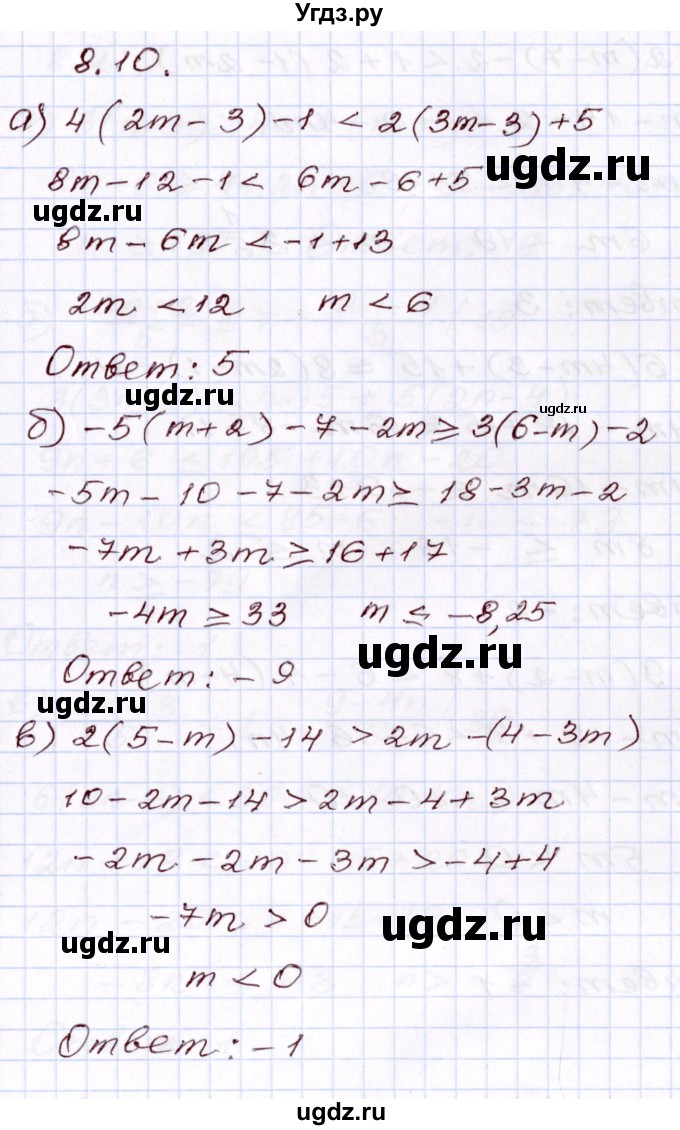 Угдз.ру
8.10.
а) 4(2m-3)-1<2(3m-3)+5
ugdz.ru
8m-12-1< 6m-6+5
ugdz.ru
8m-6m<-1+13
2m<12 m<6
Ответ: 5
ugdz.ru
ugdz.ru
б) -5(m+2)-7-2m≥3(6-m)-2
-5m-10-7-2m≥18-3m-2
-7m+3m≥16+17
-4m≥33 m≤-8,25
ugdz.ru
Ответ: -9
ugdz.ru
в) 2(5-m)-14>2m-(4-3m)
10-2m-14>2m-4+3m
-2m-2m-3m>-4+4
-7m>0
ugdz.ru
ugdz.ru
m<0
Ответ: -1
ugdz.ru